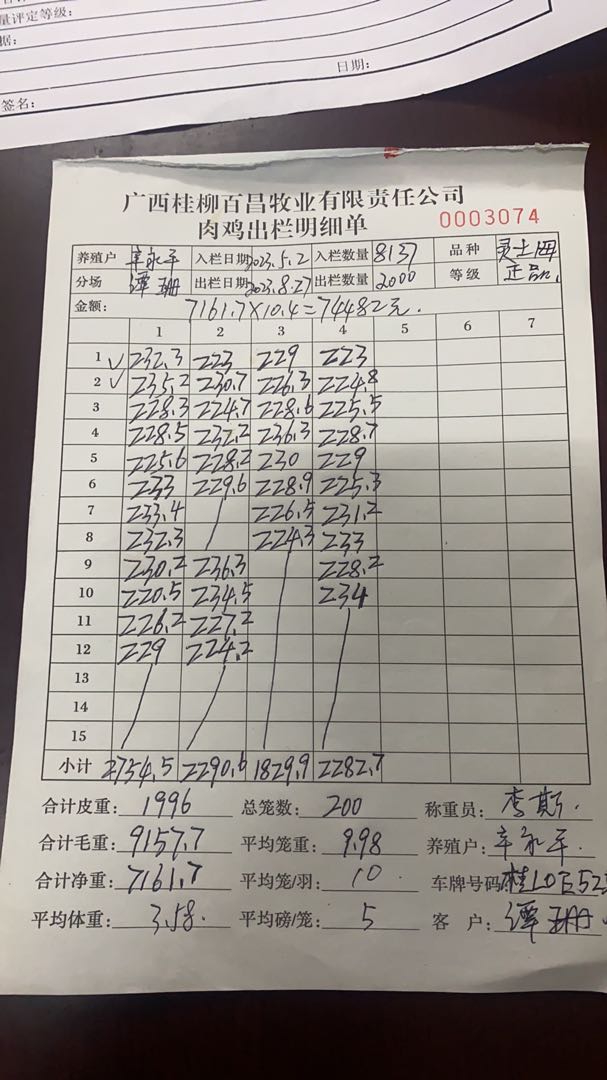 量评定等级:
据:
日期:
签名:
广西桂柳百昌牧业有限责任公司
肉鸡出栏明细单 0003074
养殖户 辛永平 入栏日期 2023.5.2 入栏数量 8137 品种 灵土四
分场 谭珊 出栏日期 2023.8.27 出栏数量 2000 等级 正品
金额: 7161.7×10.4=74482元.
1 2 3 4 5 6 7
1 ✓ 232.3 223 229 223
2 ✓ 235.2 230.7 226.3 224.8
3 228.3 224.7 228.6 225.5
4 228.5 232.2 236.3 228.7
5 225.6 228.2 230 229
6 233 229.6 228.9 225.3
7 233.4 226.5 231.2
8 232.3 224.3 233
9 230.2 236.3 228.2
10 220.5 234.5 234
11 226.2 227.2
12 229 224.2
13
14
15
小计 2754.5 2290.6 1829.9 2282.7
合计皮重: 1996 总笼数: 200 称重员: 李斯.
合计毛重: 9157.7 平均笼重: 9.98 养殖户: 辛永平.
合计净重: 7161.7 平均笼/羽: 10 车牌号码 桂L0E52
平均体重: 3.58. 平均磅/笼: 5 客 户: 谭珊